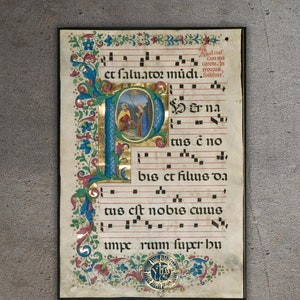 et saluator mūdi.
P U er na
tus ē no
bis et filius da
tus est nobis cuius
impe rium super hu